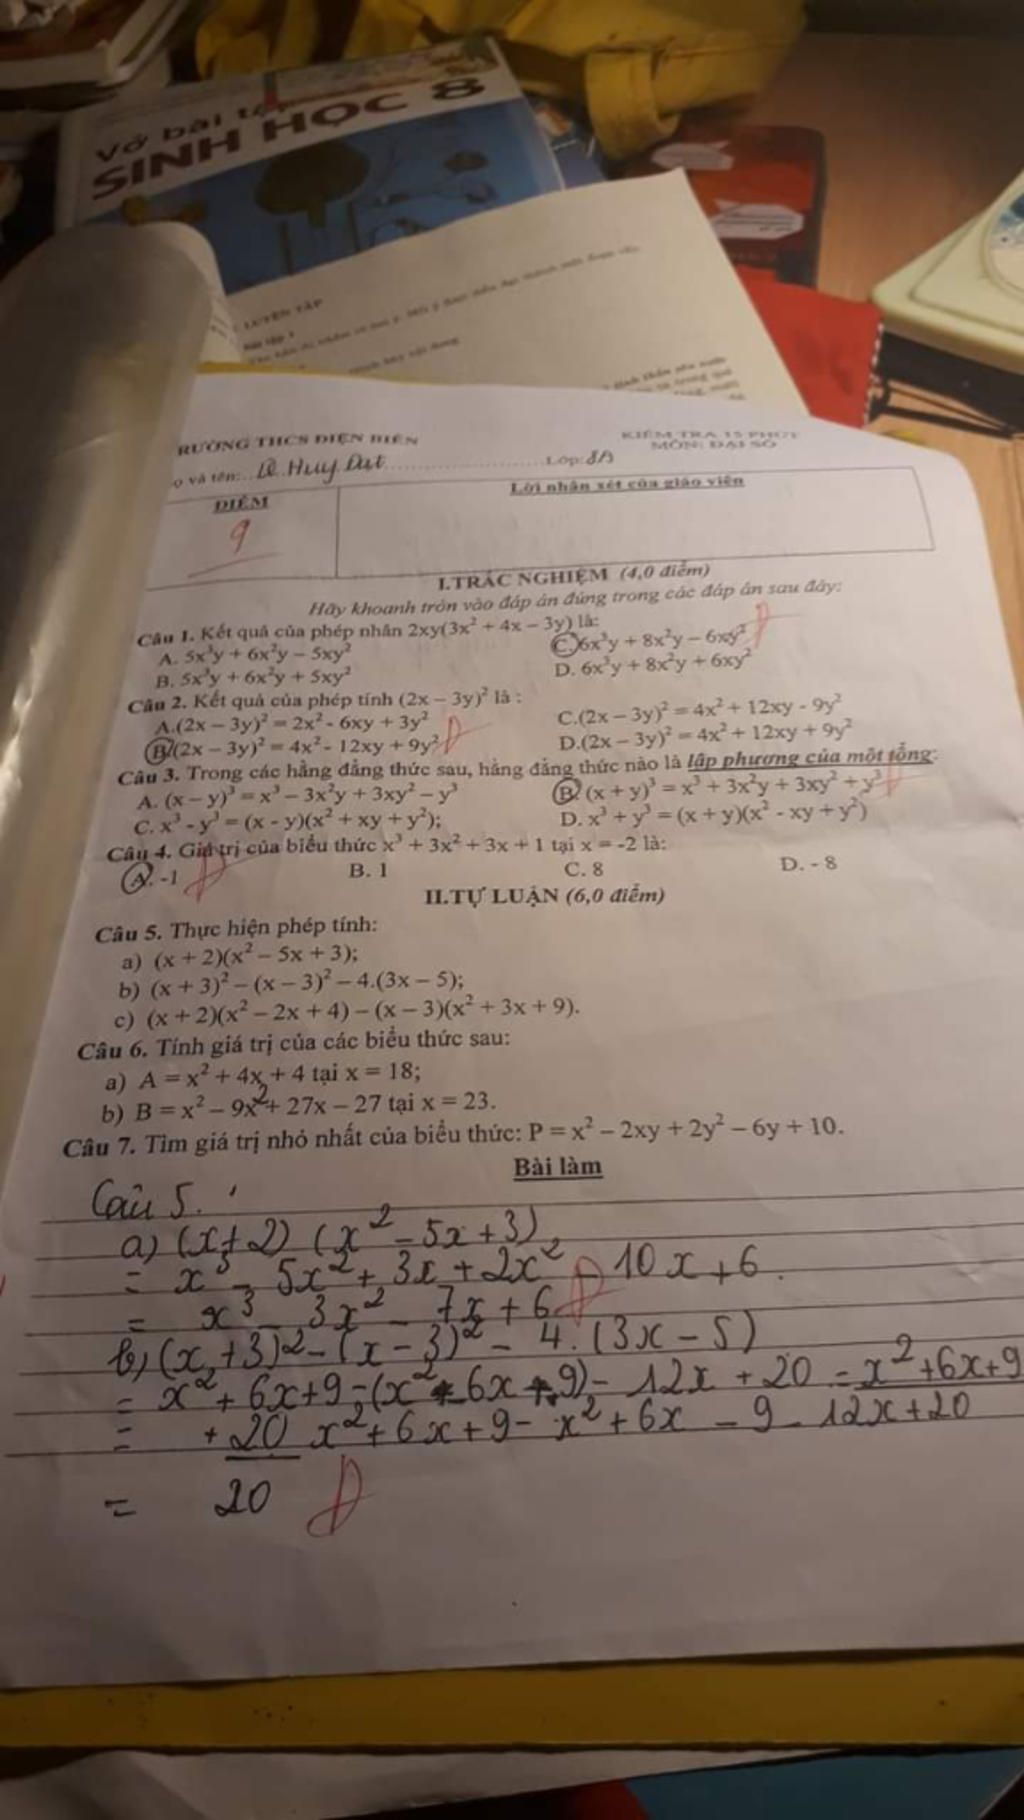 Vở bài tập
SINH HỌC 8
LUYỆN TẬP
RƯỜNG THCS ĐIỆN BIÊN
KIỂM TRA 15 PHÚT
MÔN: ĐẠI SỐ
ọ và tên: Lê Huy Đạt Lớp: 8A
ĐIỂM
Lời nhận xét của giáo viên
9
I.TRẮC NGHIỆM (4,0 điểm)
Hãy khoanh tròn vào đáp án đúng trong các đáp án sau đây:
Câu 1. Kết quả của phép nhân 2xy(3x² + 4x – 3y) là:
A. 5x³y + 6x²y – 5xy²
C. 6x³y + 8x²y – 6xy²
B. 5x³y + 6x²y + 5xy²
D. 6x³y + 8x²y + 6xy²
Câu 2. Kết quả của phép tính (2x – 3y)² là :
A.(2x – 3y)² = 2x² - 6xy + 3y²
C.(2x – 3y)² = 4x² + 12xy - 9y²
B.(2x – 3y)² = 4x² - 12xy + 9y²
D.(2x – 3y)² = 4x² + 12xy + 9y²
Câu 3. Trong các hằng đẳng thức sau, hằng đẳng thức nào là lập phương của một tổng:
A. (x – y)³ = x³ – 3x²y + 3xy² – y³
B. (x + y)³ = x³ + 3x²y + 3xy² + y³
C. x³ - y³ = (x - y)(x² + xy + y²);
D. x³ + y³ = (x + y)(x² - xy + y²)
Câu 4. Giá trị của biểu thức x³ + 3x² + 3x + 1 tại x = -2 là:
A. -1 B. 1 C. 8 D. - 8
II.TỰ LUẬN (6,0 điểm)
Câu 5. Thực hiện phép tính:
a) (x + 2)(x² – 5x + 3);
b) (x + 3)² – (x – 3)² – 4.(3x – 5);
c) (x + 2)(x² – 2x + 4) – (x – 3)(x² + 3x + 9).
Câu 6. Tính giá trị của các biểu thức sau:
a) A = x² + 4x + 4 tại x = 18;
b) B = x² – 9x² + 27x – 27 tại x = 23.
Câu 7. Tìm giá trị nhỏ nhất của biểu thức: P = x² – 2xy + 2y² – 6y + 10.
Bài làm
Câu 5.
a) (x+2) (x² - 5x + 3)
= x³ - 5x² + 3x + 2x² - 10x + 6
= x³ - 3x² - 7x + 6
b) (x+3)² - (x-3)² - 4.(3x-5)
= x² + 6x + 9 - (x² - 6x + 9) - 12x + 20 = x² + 6x + 9
= + 20 x² + 6x + 9 - x² + 6x - 9 - 12x + 20
= 20